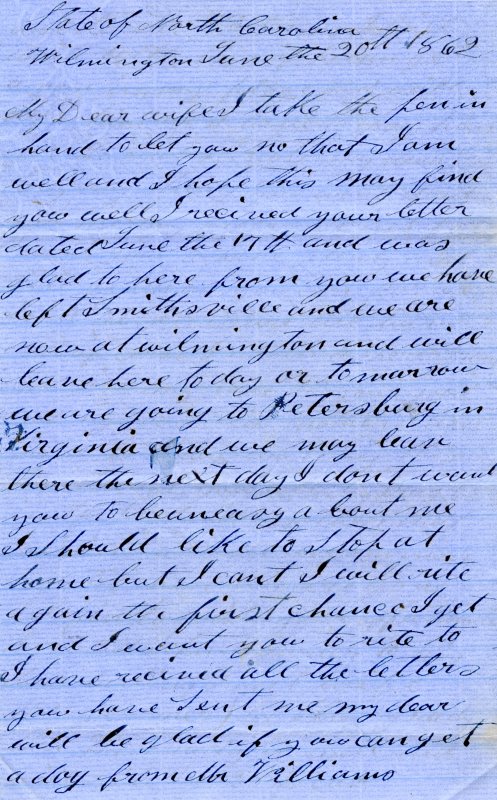 State of North Carolina
Wilmington June the 20th 1862
My Dear wife I take the pen in
hand to let you no that I am
well and I hope this may find
you well I recived your letter
dated June the 17th and was
glad to here from you we have
left Smithsville and we are
now at wilmington and will
leave here to day or tomarrow
we are going to Petersburg in
Virginia and we may leav
there the next day I dont want
you to be uneavy a bout me
I Should like to Stop at
home but I cant I will rite
again the first chance I get
and I want you to rite to
I have recived all the letters
you have Sent me my dear
will be glad if you can get
a dog from Mr Williams